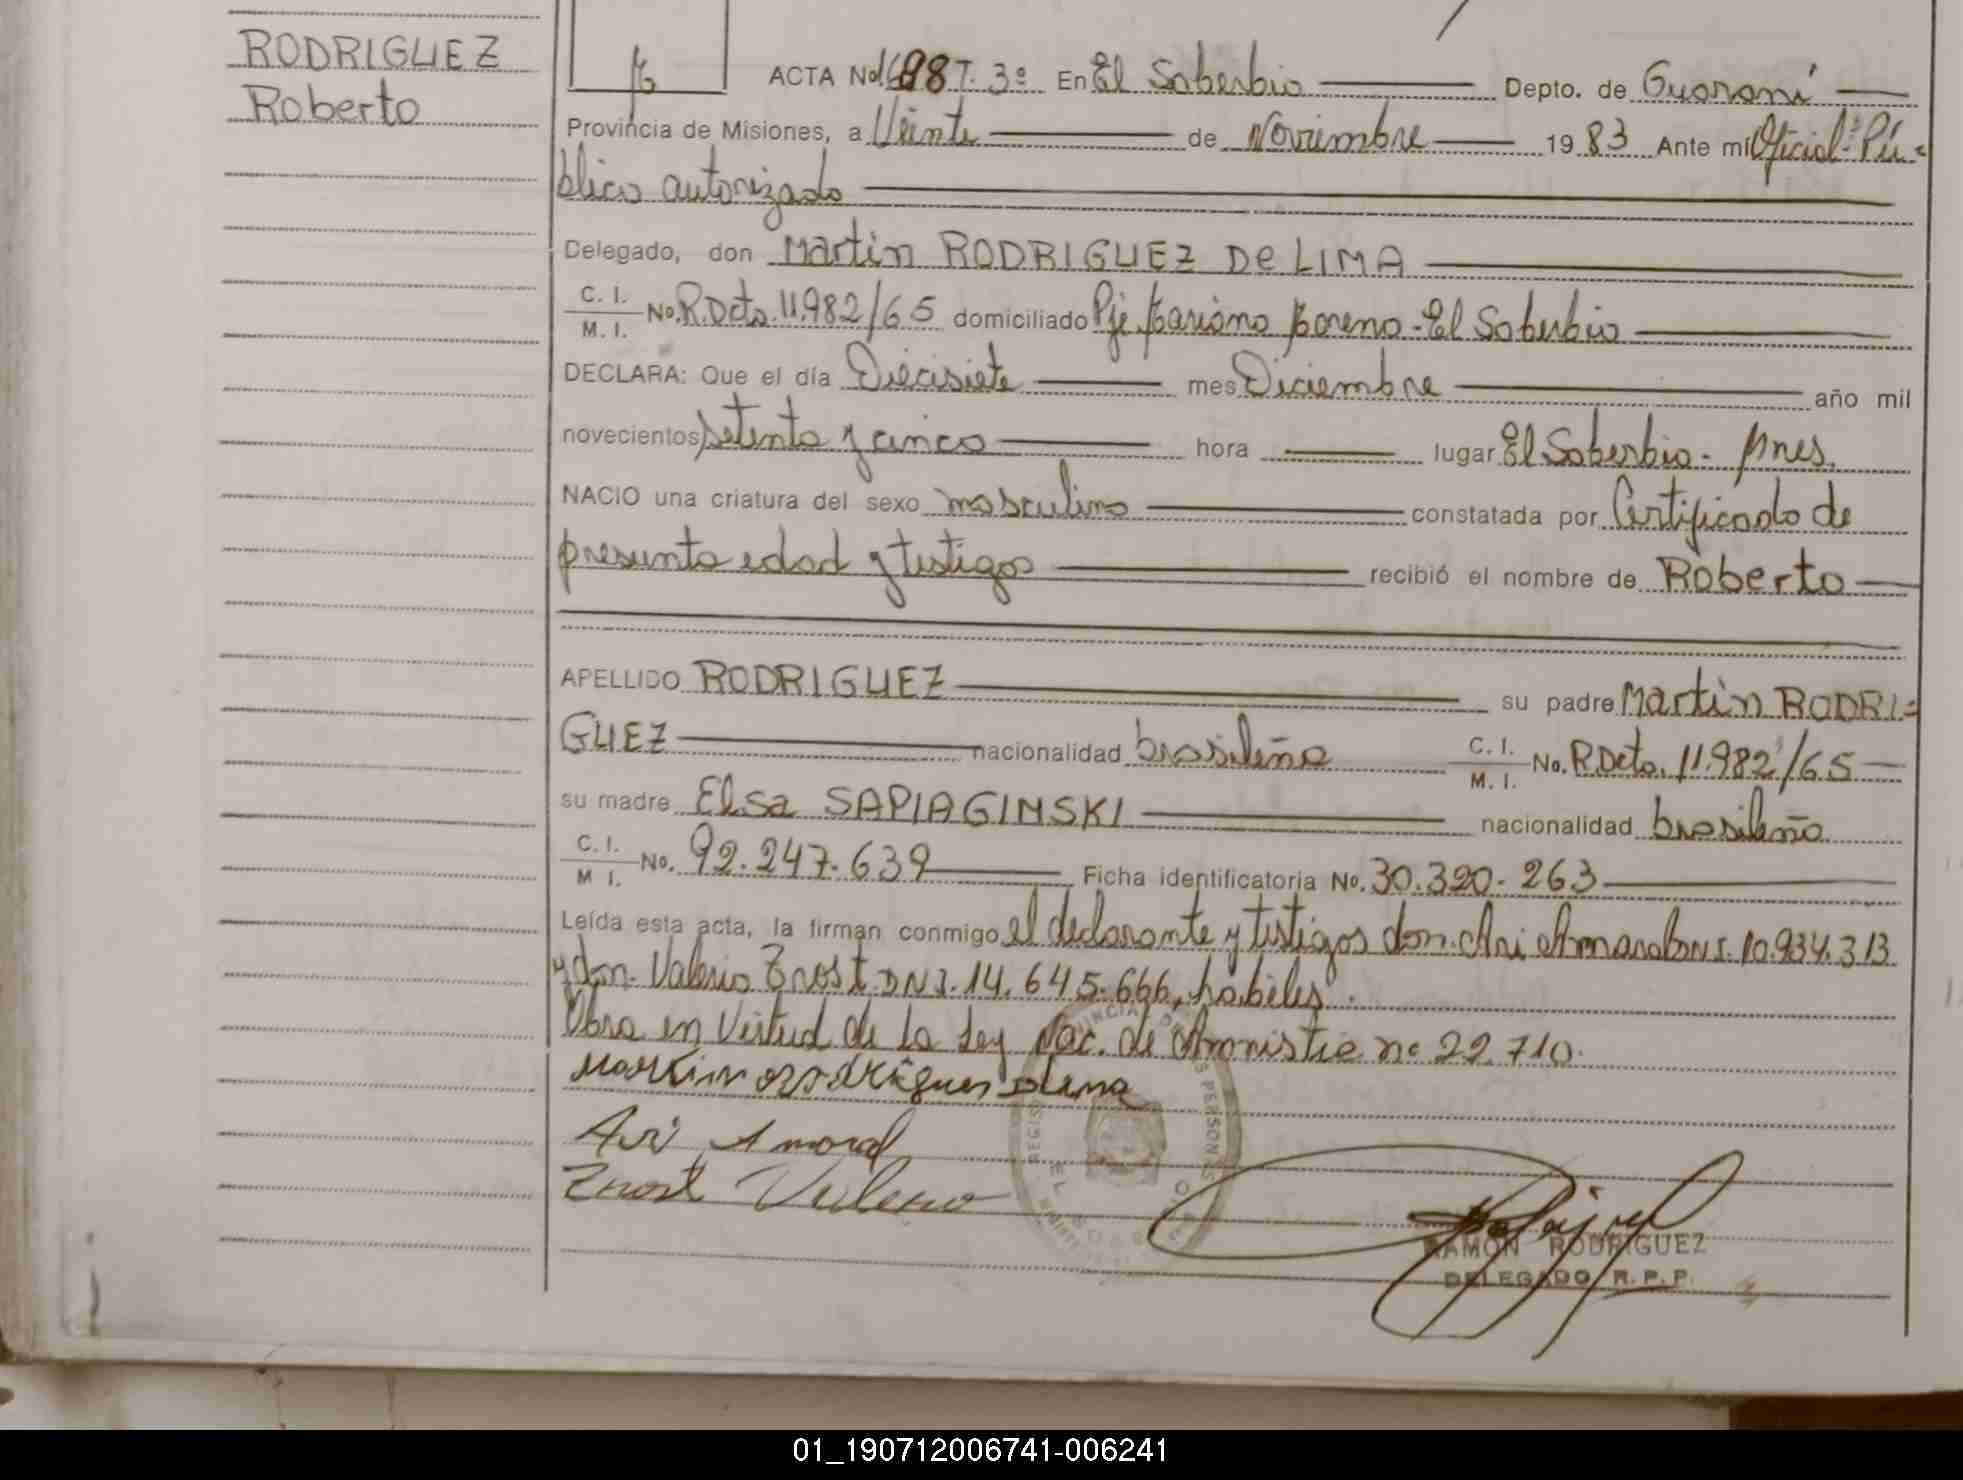 RODRIGUEZ
Roberto
ACTA No 1698 T. 3º En El Soberbio Depto. de Guaraní
Provincia de Misiones, a Veinte de Noviembre 19 83 Ante mi Oficial Pú-
blico autorizado
Delegado, don Martin RODRIGUEZ De LIMA
C. I. / M. I. No. R.Dcto. 11.982/65 domiciliado Pje. Mariano Moreno - El Soberbio
DECLARA: Que el día Diecisiete mes Diciembre año mil
novecientos setenta y cinco hora lugar El Soberbio - Mnes.
NACIO una criatura del sexo masculino constatada por Certificado de
presunta edad y testigos recibió el nombre de Roberto
APELLIDO RODRIGUEZ su padre Martin RODRI-
GUEZ nacionalidad brasileña C. I. / M. I. No. R.Dcto. 11.982/65
su madre Elsa SAPIAGINSKI nacionalidad brasileña
C. I. / M I. No. 92.247.639 Ficha identificatoria No. 30.320.263
Leída esta acta, la firman conmigo el declarante y testigos don Ari Amaral DNI. 10.934.313
y don Valerio Znost DNI. 14.645.666, habiles.
Obra en Virtud de la Ley Nac. de Amnistia nº 22.710.
Ari Amaral
Znost Valerio
RAMÓN RODRIGUEZ
DELEGADO R. P. P.
01_190712006741-006241